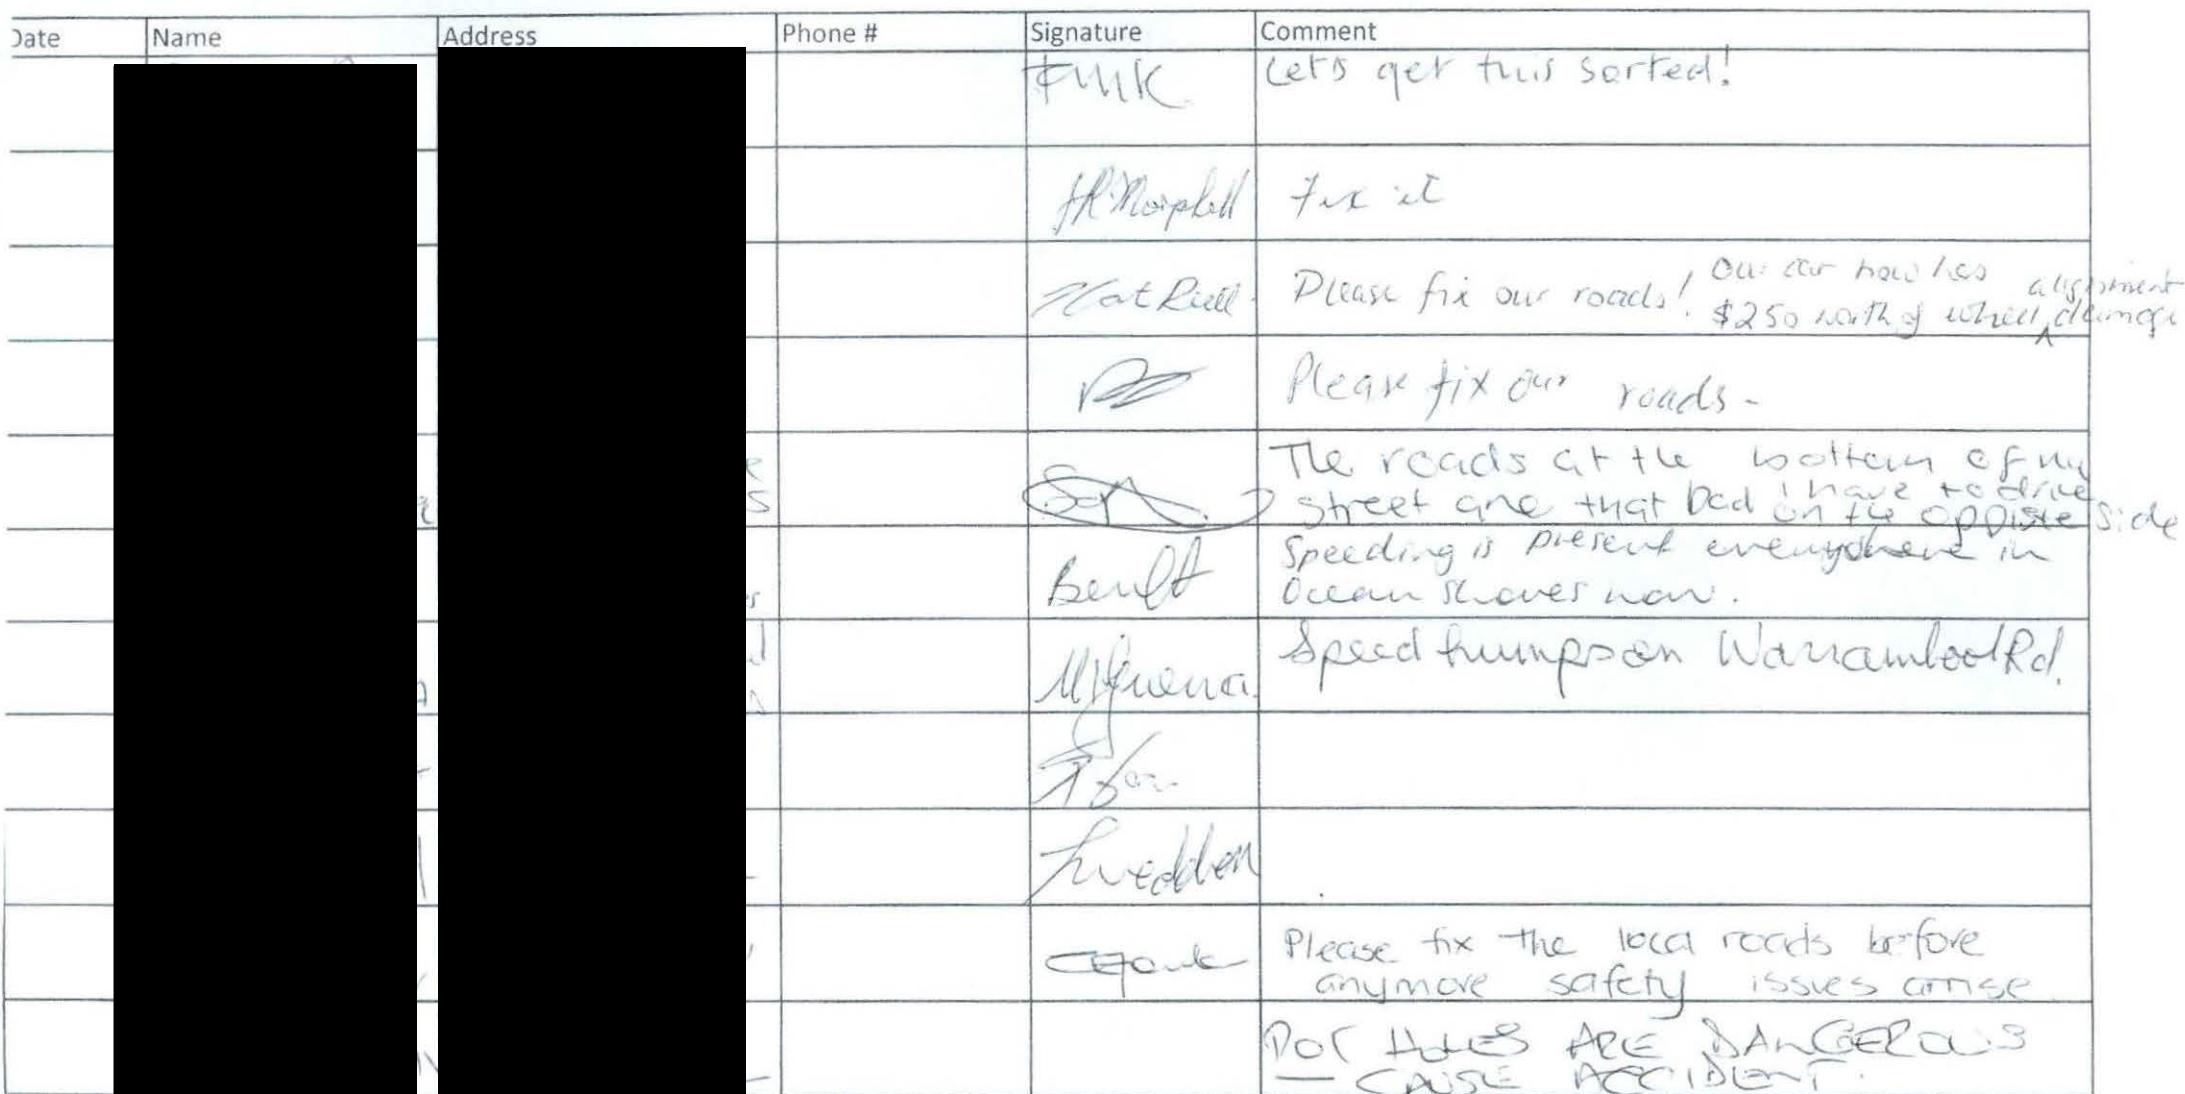 Date Name Address Phone # Signature Comment
Let's get this sorted!
Fix it
Please fix our roads! Our car now has alignment
$250 worth of wheel damage
Please fix our roads -
The roads at the bottom of my
street are that bad i have to drive
on the oppiste side
Speeding is present everywhere in
Ocean Shores now.
Speed humps on Warrambool Rd.
Please fix the local roads before
anymore safety issues arrise
POT HOLES ARE DANGEROUS
— CAUSE ACCIDENT.